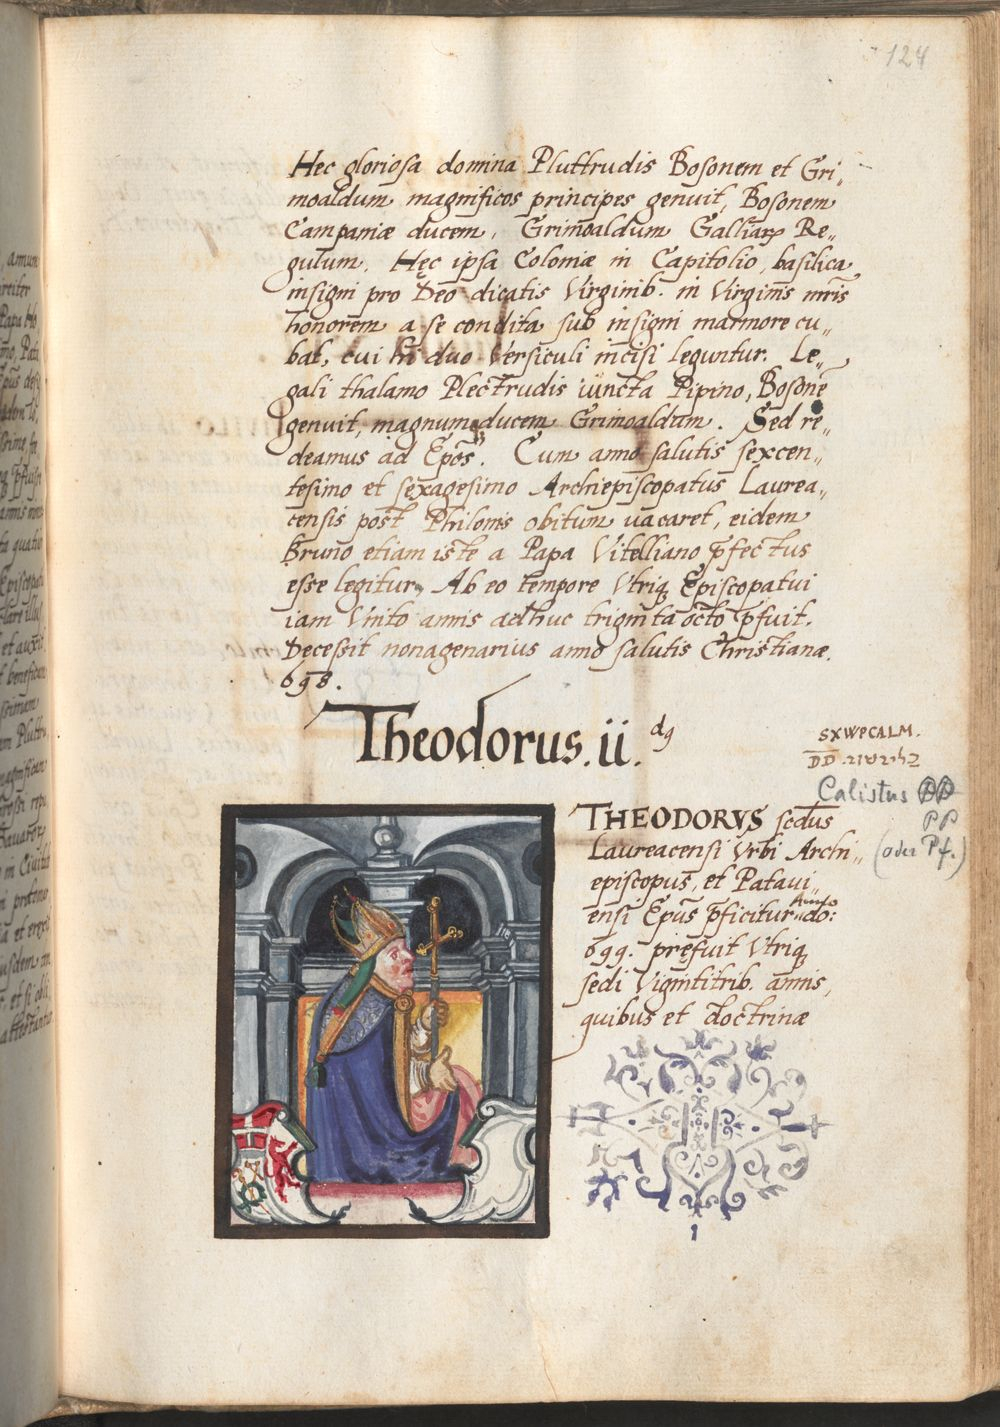 124
Hec gloriosa domina Pluttrudis Bosonem et Gri„
moaldum magnificos principes genuit, Bosonem
Campaniæ ducem, Grimoaldum Galliaꝝ Re„
gulum. Hęc ipsa Coloniæ in Capitolio, basilica
insigni pro Deo dicatis Virginib. in Virginis mr̄is
honorem a se condita sub insigni marmore cu„
bat, cui hi duo Versiculi incisi leguntur. Le„
gali thalamo Plectrudis iuncta Pipino, Bosonē
genuit, magnum ducem Grimoaldum. Sed re„
deamus ad Ep̄os. Cum anno salutis sexcen„
tesimo et sexagesimo Archiepiscopatus Laurea„
censis post Philonis obitum vacaret, eidem
Bruno etiam iste a Papa Vitelliano p̄fectus
esse legitur, Ab eo tempore Vtriq, Episcopatui
iam Vnito annis adhuc triginta octo p̄fuit.
Decessit nonagenarius anno salutis Christianæ.
698.
Theodorus. ii. dg
SXWPCALM.
Calistus PP
PP
(oder Pf.)
THEODORVS secdus
Laureacensi Vrbi Archi„
episcopus, et Patavi„
ensi Ep̄us p̄ficitur Anno do:
699. pręfuit Vtriq,
sedi Vigintitrib. annis,
quibus et doctrinæ